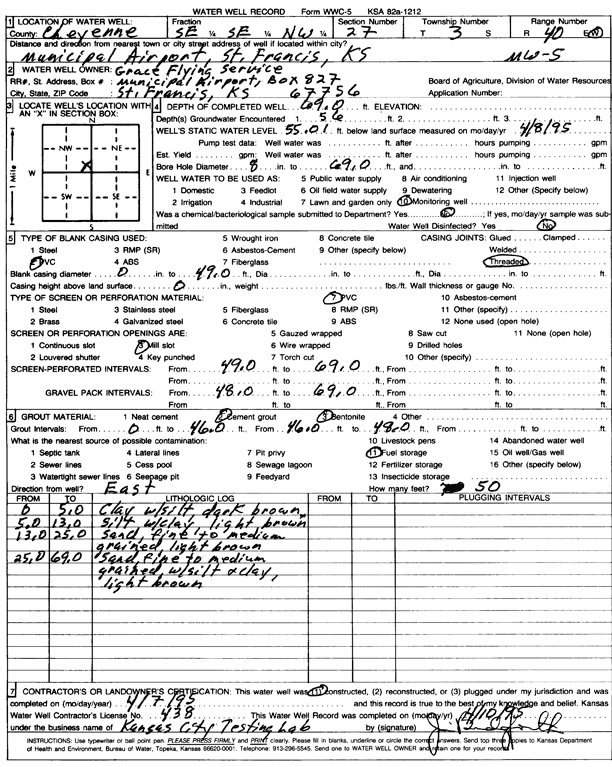 WATER WELL RECORD Form WWC-5 KSA 82a-1212
1 LOCATION OF WATER WELL: Fraction Section Number Township Number Range Number
County: Cheyenne SE ¼ SE ¼ NW ¼ 27 T 3 S R 40 E/W
Distance and direction from nearest town or city street address of well if located within city?
Municipal Airport, St. Francis, KS MW-5
2 WATER WELL OWNER: Grace Flying Service
RR#, St. Address, Box # : Municipal Airport, Box 827 Board of Agriculture, Division of Water Resources
City, State, ZIP Code : St. Francis, KS 67756 Application Number:
3 LOCATE WELL'S LOCATION WITH AN "X" IN SECTION BOX:
N
NW NE
W X E
SW SE
S
1 Mile
4 DEPTH OF COMPLETED WELL 69.0 ft. ELEVATION:
Depth(s) Groundwater Encountered 1. 56 ft. 2. ft. 3. ft.
WELL'S STATIC WATER LEVEL 55.01 ft. below land surface measured on mo/day/yr 4/8/95
Pump test data: Well water was ft. after hours pumping gpm
Est. Yield gpm: Well water was ft. after hours pumping gpm
Bore Hole Diameter 8 in. to 69.0 ft., and in. to ft.
WELL WATER TO BE USED AS: 5 Public water supply 8 Air conditioning 11 Injection well
1 Domestic 3 Feedlot 6 Oil field water supply 9 Dewatering 12 Other (Specify below)
2 Irrigation 4 Industrial 7 Lawn and garden only 10 Monitoring well
Was a chemical/bacteriological sample submitted to Department? Yes No ; If yes, mo/day/yr sample was sub-
mitted Water Well Disinfected? Yes No
5 TYPE OF BLANK CASING USED: 5 Wrought iron 8 Concrete tile CASING JOINTS: Glued Clamped
1 Steel 3 RMP (SR) 6 Asbestos-Cement 9 Other (specify below) Welded
2 PVC 4 ABS 7 Fiberglass Threaded
Blank casing diameter 0 in. to 49.0 ft., Dia in. to ft., Dia in. to ft.
Casing height above land surface 0 in., weight lbs./ft. Wall thickness or gauge No.
TYPE OF SCREEN OR PERFORATION MATERIAL: 7 PVC 10 Asbestos-cement
1 Steel 3 Stainless steel 5 Fiberglass 8 RMP (SR) 11 Other (specify)
2 Brass 4 Galvanized steel 6 Concrete tile 9 ABS 12 None used (open hole)
SCREEN OR PERFORATION OPENINGS ARE: 5 Gauzed wrapped 8 Saw cut 11 None (open hole)
1 Continuous slot 3 Mill slot 6 Wire wrapped 9 Drilled holes
2 Louvered shutter 4 Key punched 7 Torch cut 10 Other (specify)
SCREEN-PERFORATED INTERVALS: From 49.0 ft. to 69.0 ft., From ft. to ft.
From ft. to ft., From ft. to ft.
GRAVEL PACK INTERVALS: From 48.0 ft. to 69.0 ft., From ft. to ft.
From ft. to ft., From ft. to ft.
6 GROUT MATERIAL: 1 Neat cement 2 Cement grout 3 Bentonite 4 Other
Grout Intervals: From 0 ft. to 46.0 ft., From 46.0 ft. to 48.0 ft., From ft. to ft.
What is the nearest source of possible contamination: 10 Livestock pens 14 Abandoned water well
1 Septic tank 4 Lateral lines 7 Pit privy 11 Fuel storage 15 Oil well/Gas well
2 Sewer lines 5 Cess pool 8 Sewage lagoon 12 Fertilizer storage 16 Other (specify below)
3 Watertight sewer lines 6 Seepage pit 9 Feedyard 13 Insecticide storage
Direction from well? East How many feet? 50
FROM TO LITHOLOGIC LOG FROM TO PLUGGING INTERVALS
0 5.0 Clay w/silt, dark brown
5.0 13.0 Silt w/clay, light brown
13.0 25.0 Sand, fine to medium
grained, light brown
25.0 69.0 Sand, fine to medium
grained, w/silt & clay,
light brown
7 CONTRACTOR'S OR LANDOWNER'S CERTIFICATION: This water well was (1) constructed, (2) reconstructed, or (3) plugged under my jurisdiction and was
completed on (mo/day/year) 4/7/95 and this record is true to the best of my knowledge and belief. Kansas
Water Well Contractor's License No. 438 This Water Well Record was completed on (mo/day/yr) 4/10/95
under the business name of Kansas City Testing Lab by (signature)
INSTRUCTIONS: Use typewriter or ball point pen. PLEASE PRESS FIRMLY and PRINT clearly. Please fill in blanks, underline or circle the correct answers. Send top three copies to Kansas Department
of Health and Environment, Bureau of Water, Topeka, Kansas 66620-0001. Telephone: 913-296-5545. Send one to WATER WELL OWNER and retain one for your records.